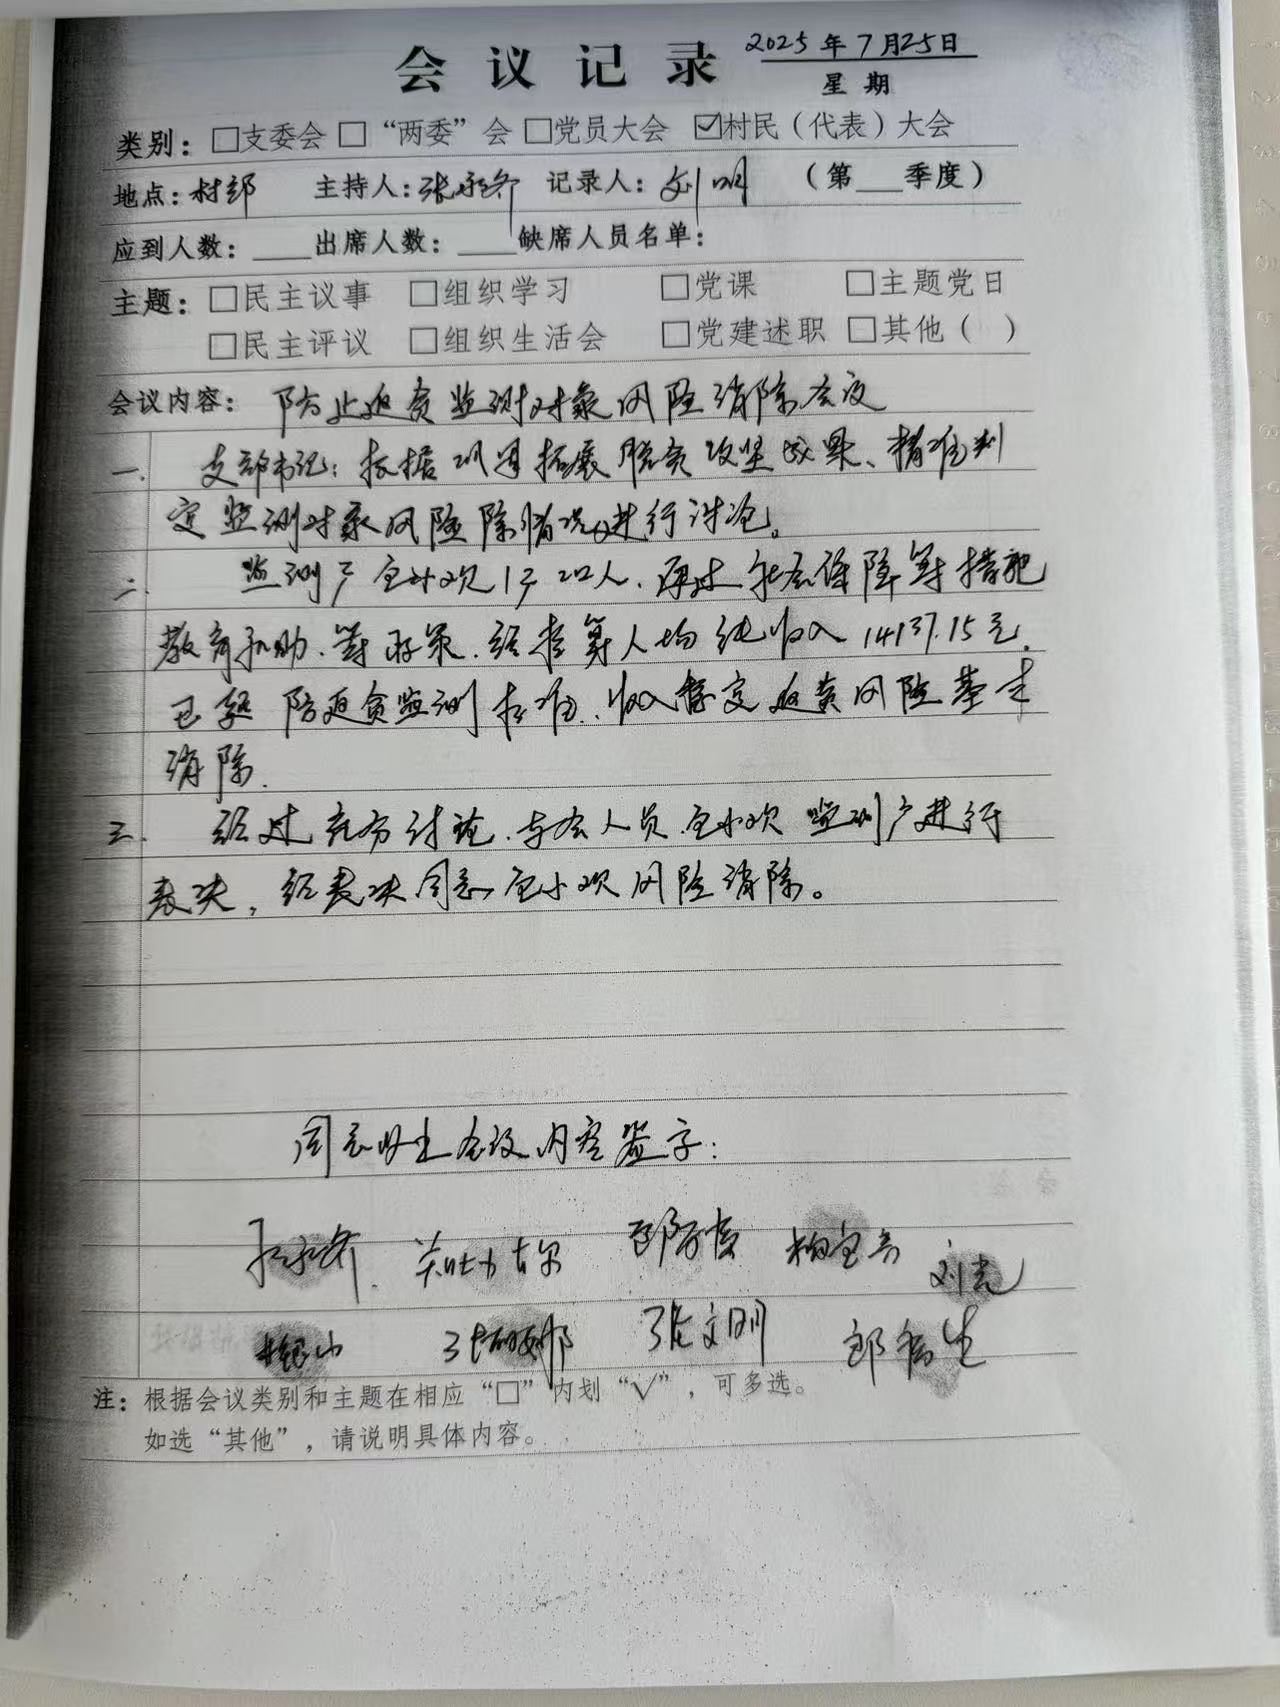 会议记录 2025年7月25日
星期
类别：□支委会 □“两委”会 □党员大会 ☑村民（代表）大会
地点：村部 主持人：张永齐 记录人：刘明 （第___季度）
应到人数：____出席人数：____缺席人员名单：
主题：□民主议事 □组织学习 □党课 □主题党日
□民主评议 □组织生活会 □党建述职 □其他（ ）
会议内容：防止返贫监测对象风险消除会议
一、支部书记：根据巩固拓展脱贫攻坚成果、精准判
定监测对象风险消除情况进行讨论。
二、监测户包小欢1户2口人，通过社会保障等措施
教育补助、等政策，经核算人均纯收入14137.15元，
已超防返贫监测标准、收入稳定返贫风险基本
消除.
三、经过充分讨论，与会人员包小欢监测户进行
表决，经表决同意包小欢风险消除。
同意以上会议内容签字：
张永齐 柏宝音 刘亮
银山 张文明 邰福生
注：根据会议类别和主题在相应“□”内划“√”，可多选。
如选“其他”，请说明具体内容。